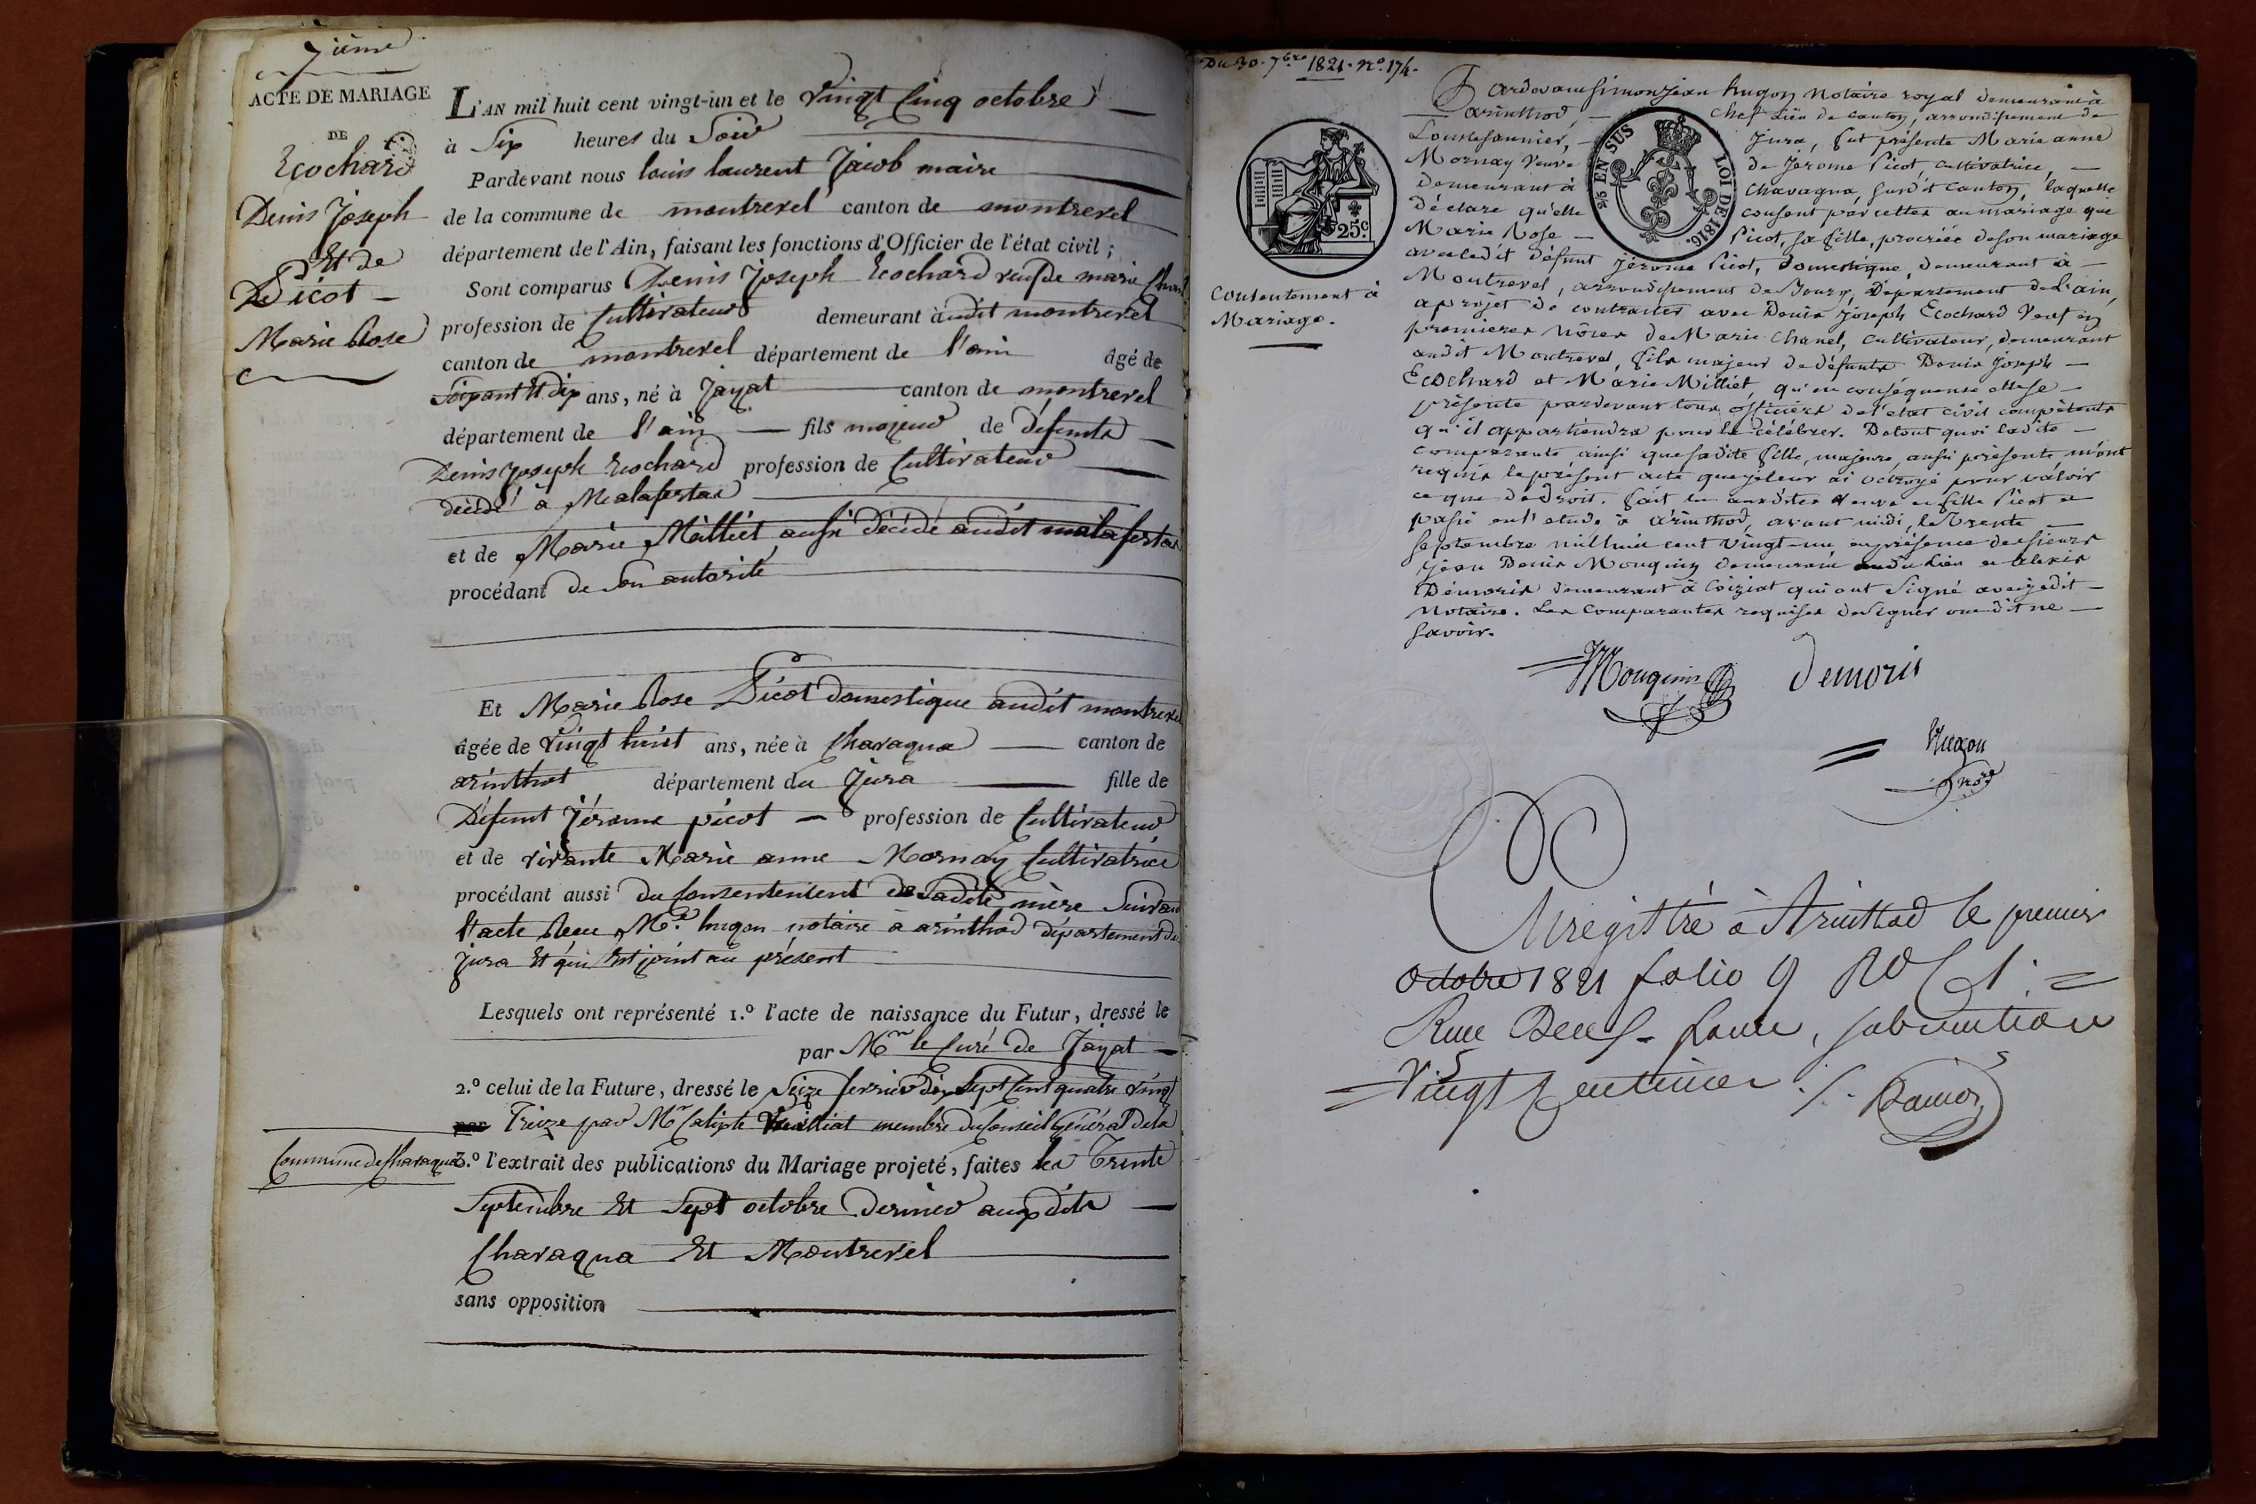 7ième
ACTE DE MARIAGE
DE
Ecochard
Denis Joseph
Et de
Picot
Marie Rose
L'AN mil huit cent vingt-un et le Vingt Cinq octobre
à Six heures du Soir
Pardevant nous louis laurent Jacob maire
de la commune de montrevel canton de montrevel
département de l'Ain, faisant les fonctions d'Officier de l'état civil ;
Sont comparus Denis Joseph Ecochard veuf de marie Chanel
profession de Cultivateur demeurant audit montrevel
canton de montrevel département de l'ain âgé de
Soixant Et dix ans, né à Jayat canton de montrevel
département de l'ain fils majeur de défunts
Denis Joseph Ecochard profession de Cultivateur
décédé à Malafretas
et de Marie Milliet aussi décédé audit malafretas
procédant de son autorité
Et Marie Rose Picot domestique audit montrevel
âgée de vingt huit ans, née à Chavagna canton de
arinthot département du Jura fille de
Défunt Jérome picot profession de Cultivateur
et de vivante Marie anne Mornay Cultivatrice
procédant aussi du Consentement de Sadite mère Suivant
l'acte Reçu Me. hugon notaire à arinthod département du
Jura Et qui Est joint au présent
Lesquels ont représenté 1.º l'acte de naissance du Futur, dressé le
par Mr le Curé de Jayat
2.º celui de la Future, dressé le Seize fevrier dix Sept Cent quatre vingt
par Treize par Mr Calipte Vuilliat membre du Conseil Général de la
Commune de Chavaqua
3.º l'extrait des publications du Mariage projeté, faites les Trente
Septembre Et Sept octobre Dernier auxdits
Chavaqua Et Montrevel
sans opposition
Du 30. 7bre 1821. No. 174.
25 EN SUS
LOI DE 1816.
25c.
Consentement à
Mariage.
Pardevant Simon Jean hugon Notaire royal demeurant à
arinthod, chef Lieu de canton, arrondissement de
Lonslesaunier, Jura, fut présente Marie anne
Mornay Veuve de Jérome Picot, cultivatrice,
Demeurant à Chavagna, Susdit Canton, laquelle
Déclare qu'elle consent par cettes au mariage que
Marie Rose Picot, sa fille, procréée de son mariage
avec ledit défunt Jérome Picot, Domestique, demeurant à
Montrevel, arrondissement de Bourg, Département de L'ain,
a projet de contracter avec Denis Joseph Ecochard Veuf en
premieres nôces de Marie Chanel, cultivateur, demeurant
audit Montrevel, fils majeur de défunts Denis Joseph
Ecochard et Marie Milliet, qu'en conséquence elle se
présente pardevant tous officiers de l'état civil compétents
qu'il appartiendra pour le célébrer. De tout quoi ladite
comparante ainsi que sadite fille, majeure aussi présente m'ont
requis le présent acte que je leur ai octroyé pour valoir
ce que de droit. fait lu auxdites veuve et fille Picot et
passé en l'étude à arinthod, avant midi, le Trente
Septembre mil huit cent vingt-un en présence des sieurs
Jean Denis Mouquin demeurant audit Lieu et Alexis
Démoris demeurant à Coiziat qui ont Signé avec ledit
Notaire. Les Comparantes requises de Signer ont dit ne
Savoir.
Mouquin Demoris
Hugon
nore
Enregistré à Arinthod le premier
octobre 1821 folio 9 Ro C 1.
Reçu Deux francs, subvention
Vingt Centimes